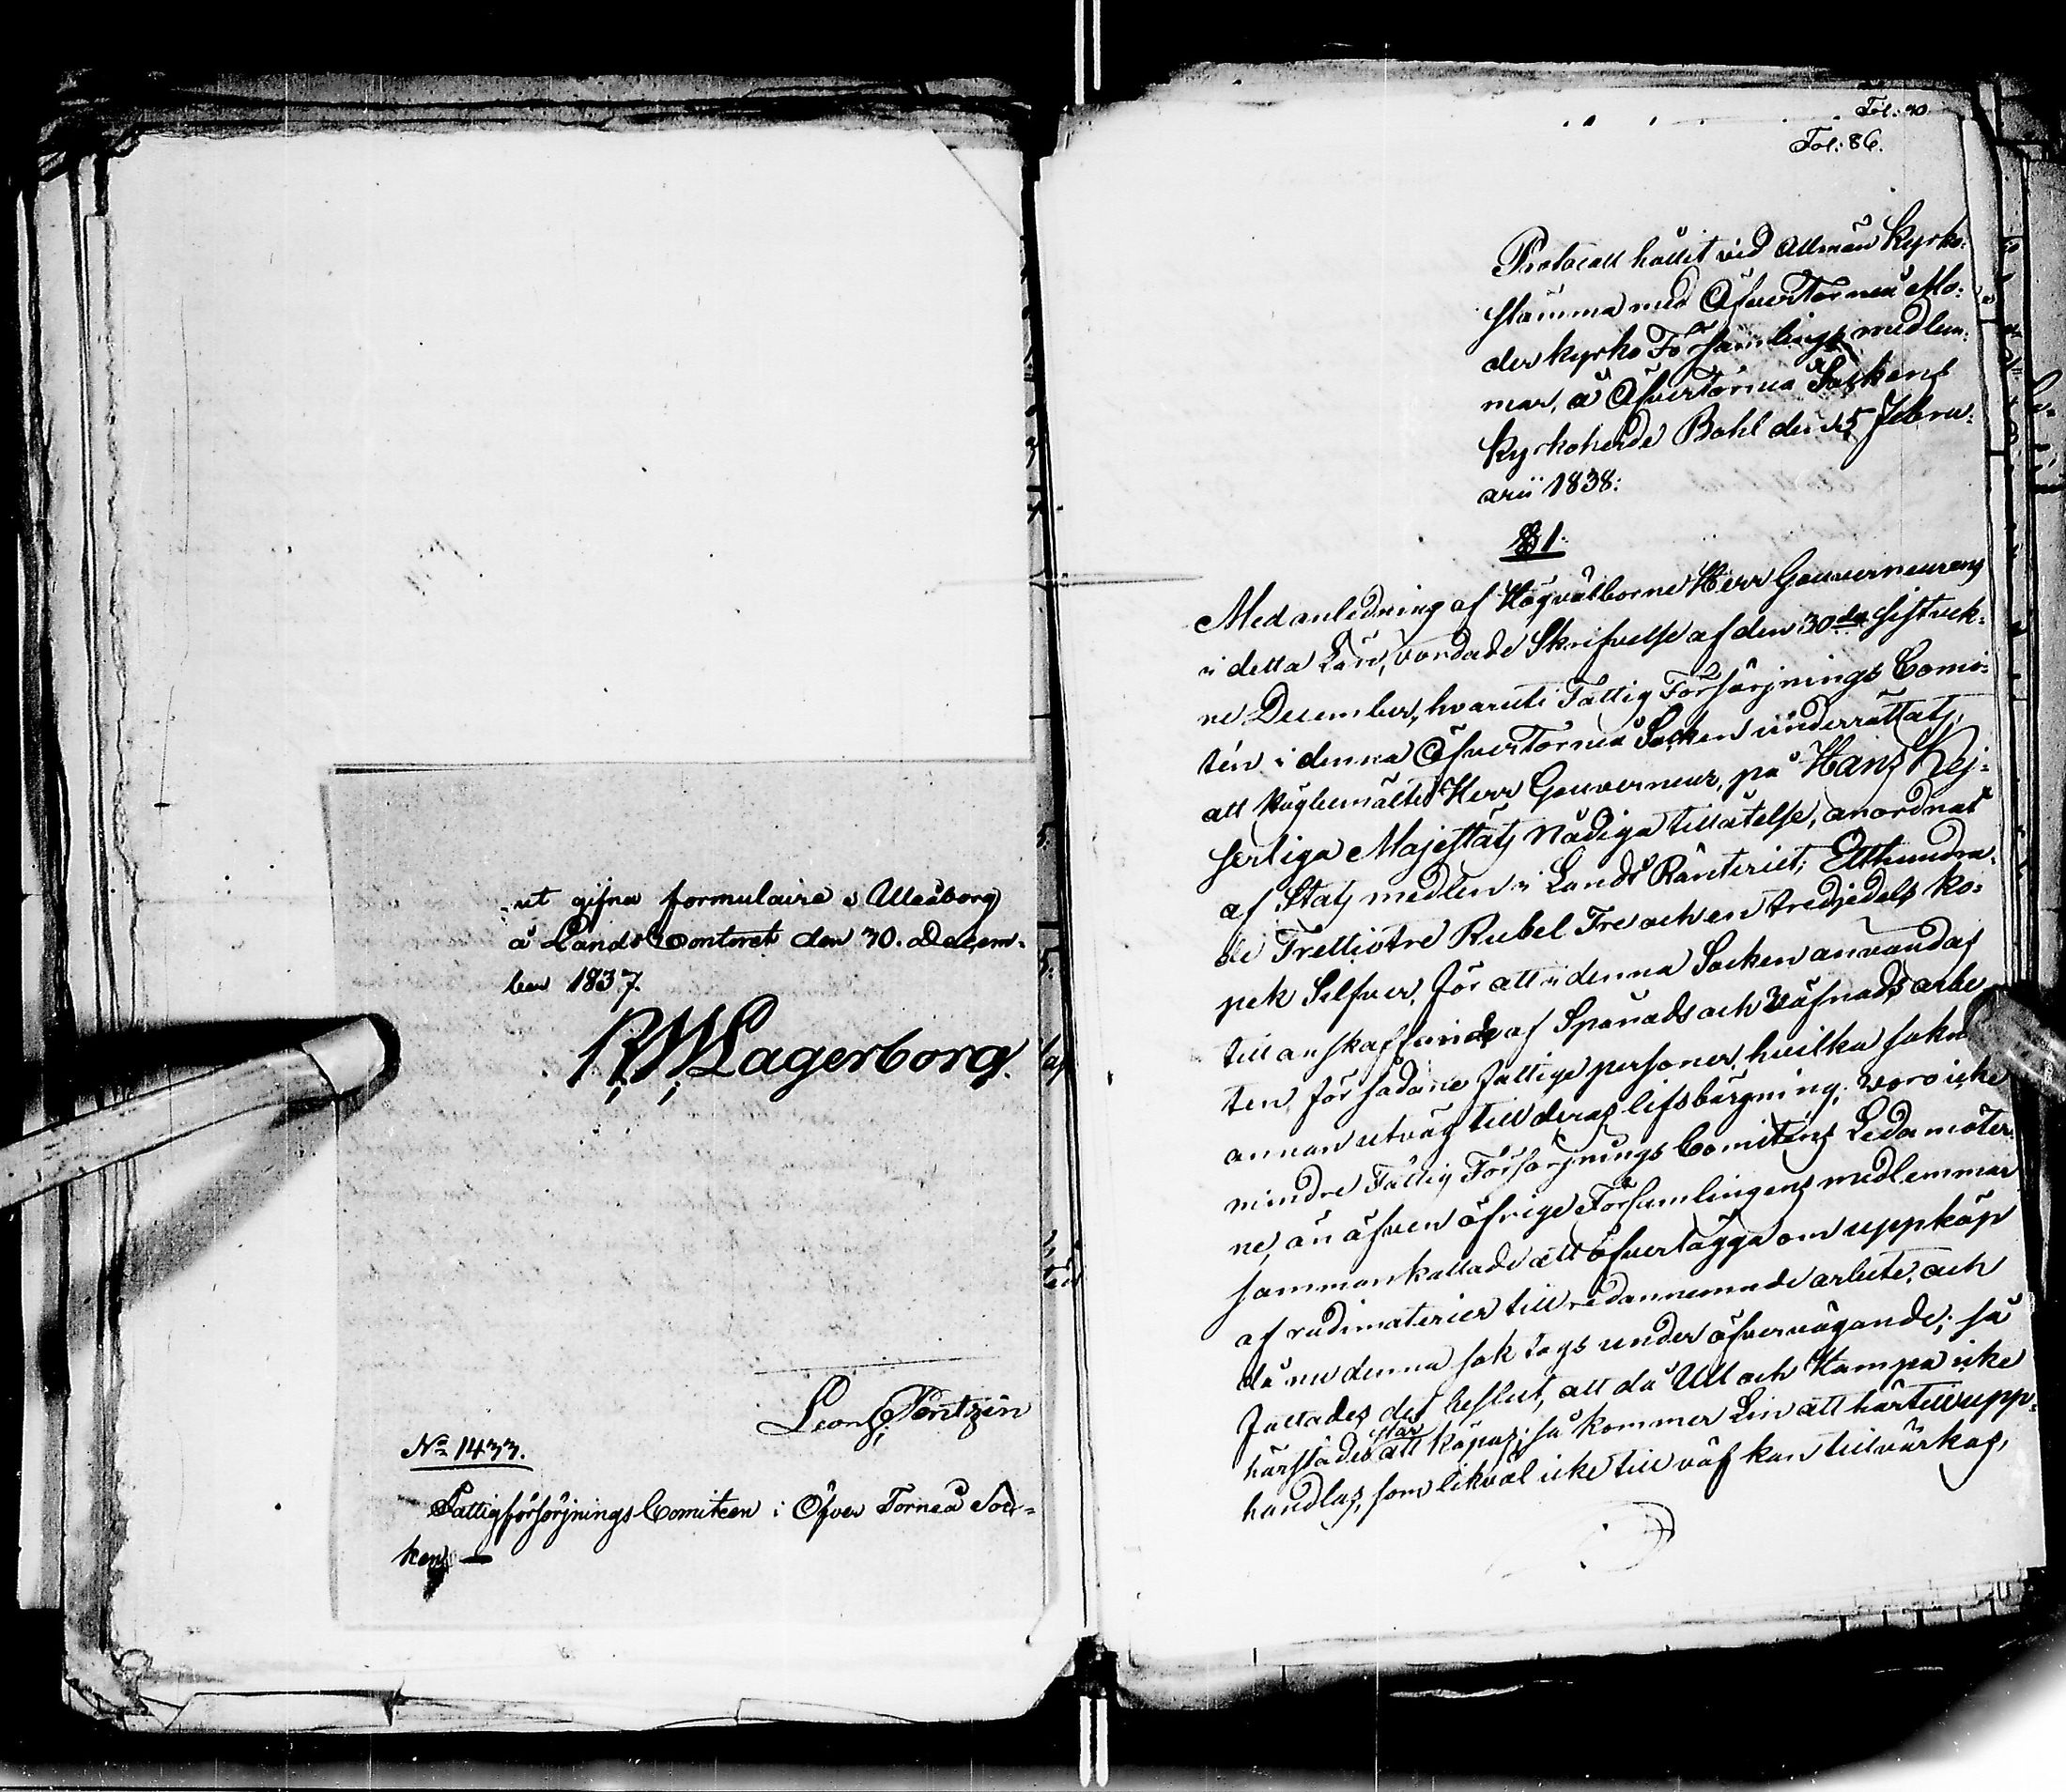 ut gifna formulaire i Uleåborg
å Lands Contoret den 30. Decem-
ber 1837.
R W Lagerborg.
Leon: Pentzin
No 1433.
Fattigförsörjnings Comiteen i Öfver Torneå Soc-
ken
Fol: 90
Fol: 86.
Protocoll hållit vid Allmän Kyrko-
stämma med Öfver Torneå Mo-
der kyrko Församlings medlem-
mar, å Öfvertorneå Sockens
Kyrkoherde Bohl den 25 Febru-
arii 1838:
§ 1.
Med anledning af Högvälborne Herr Gouverneurens
i detta Län, vördade Skrifvelse af den 30de sistvek-
ne December, hvaruti Fattig Försörjnings Comi-
tén i denna Öfver Torneå Socken underrättats,
att Högbemälte Herr Gouverneur, på Hans Kej-
serliga Majestäts Nådiga tillåtelse, anordnat
af Stats medlen i Lands Ränteriet, Etthundra-
de Trettiotre Rubel Tre och en tredjedels ko-
pek Silfver, för att i denna Socken användas
till anskaffande af Spånads och Väfnads arbe-
ten för sådane fattige personer, hvilka sakna
annan utväg till deras lifsbärgning; voro icke
mindre Fattig Försörjnings Comiténs Ledamöter-
ne, än äfven öfrige Församlingens medlemmar
sammankallade att öfverlägga om uppköp
af rudimaterier till redannemnde arbete, och
då nu denna sak togs under öfvervägande; så
fattades det beslut, att då Ull och Hampa icke
härstädes står att köpas; så kommer Lin att härtill upp-
handlas, som likväl icke till väf kan tillvärkas,